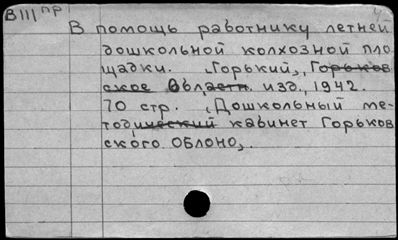 ВIII пр
В помощь работнику летней
дошкольной колхозной пло
щадки. „Горький", Горьков
ское Област. изд., 1942.
70 стр. (Дошкольный ме-
тодический кабинет Горьков
ского ОБЛОНО).